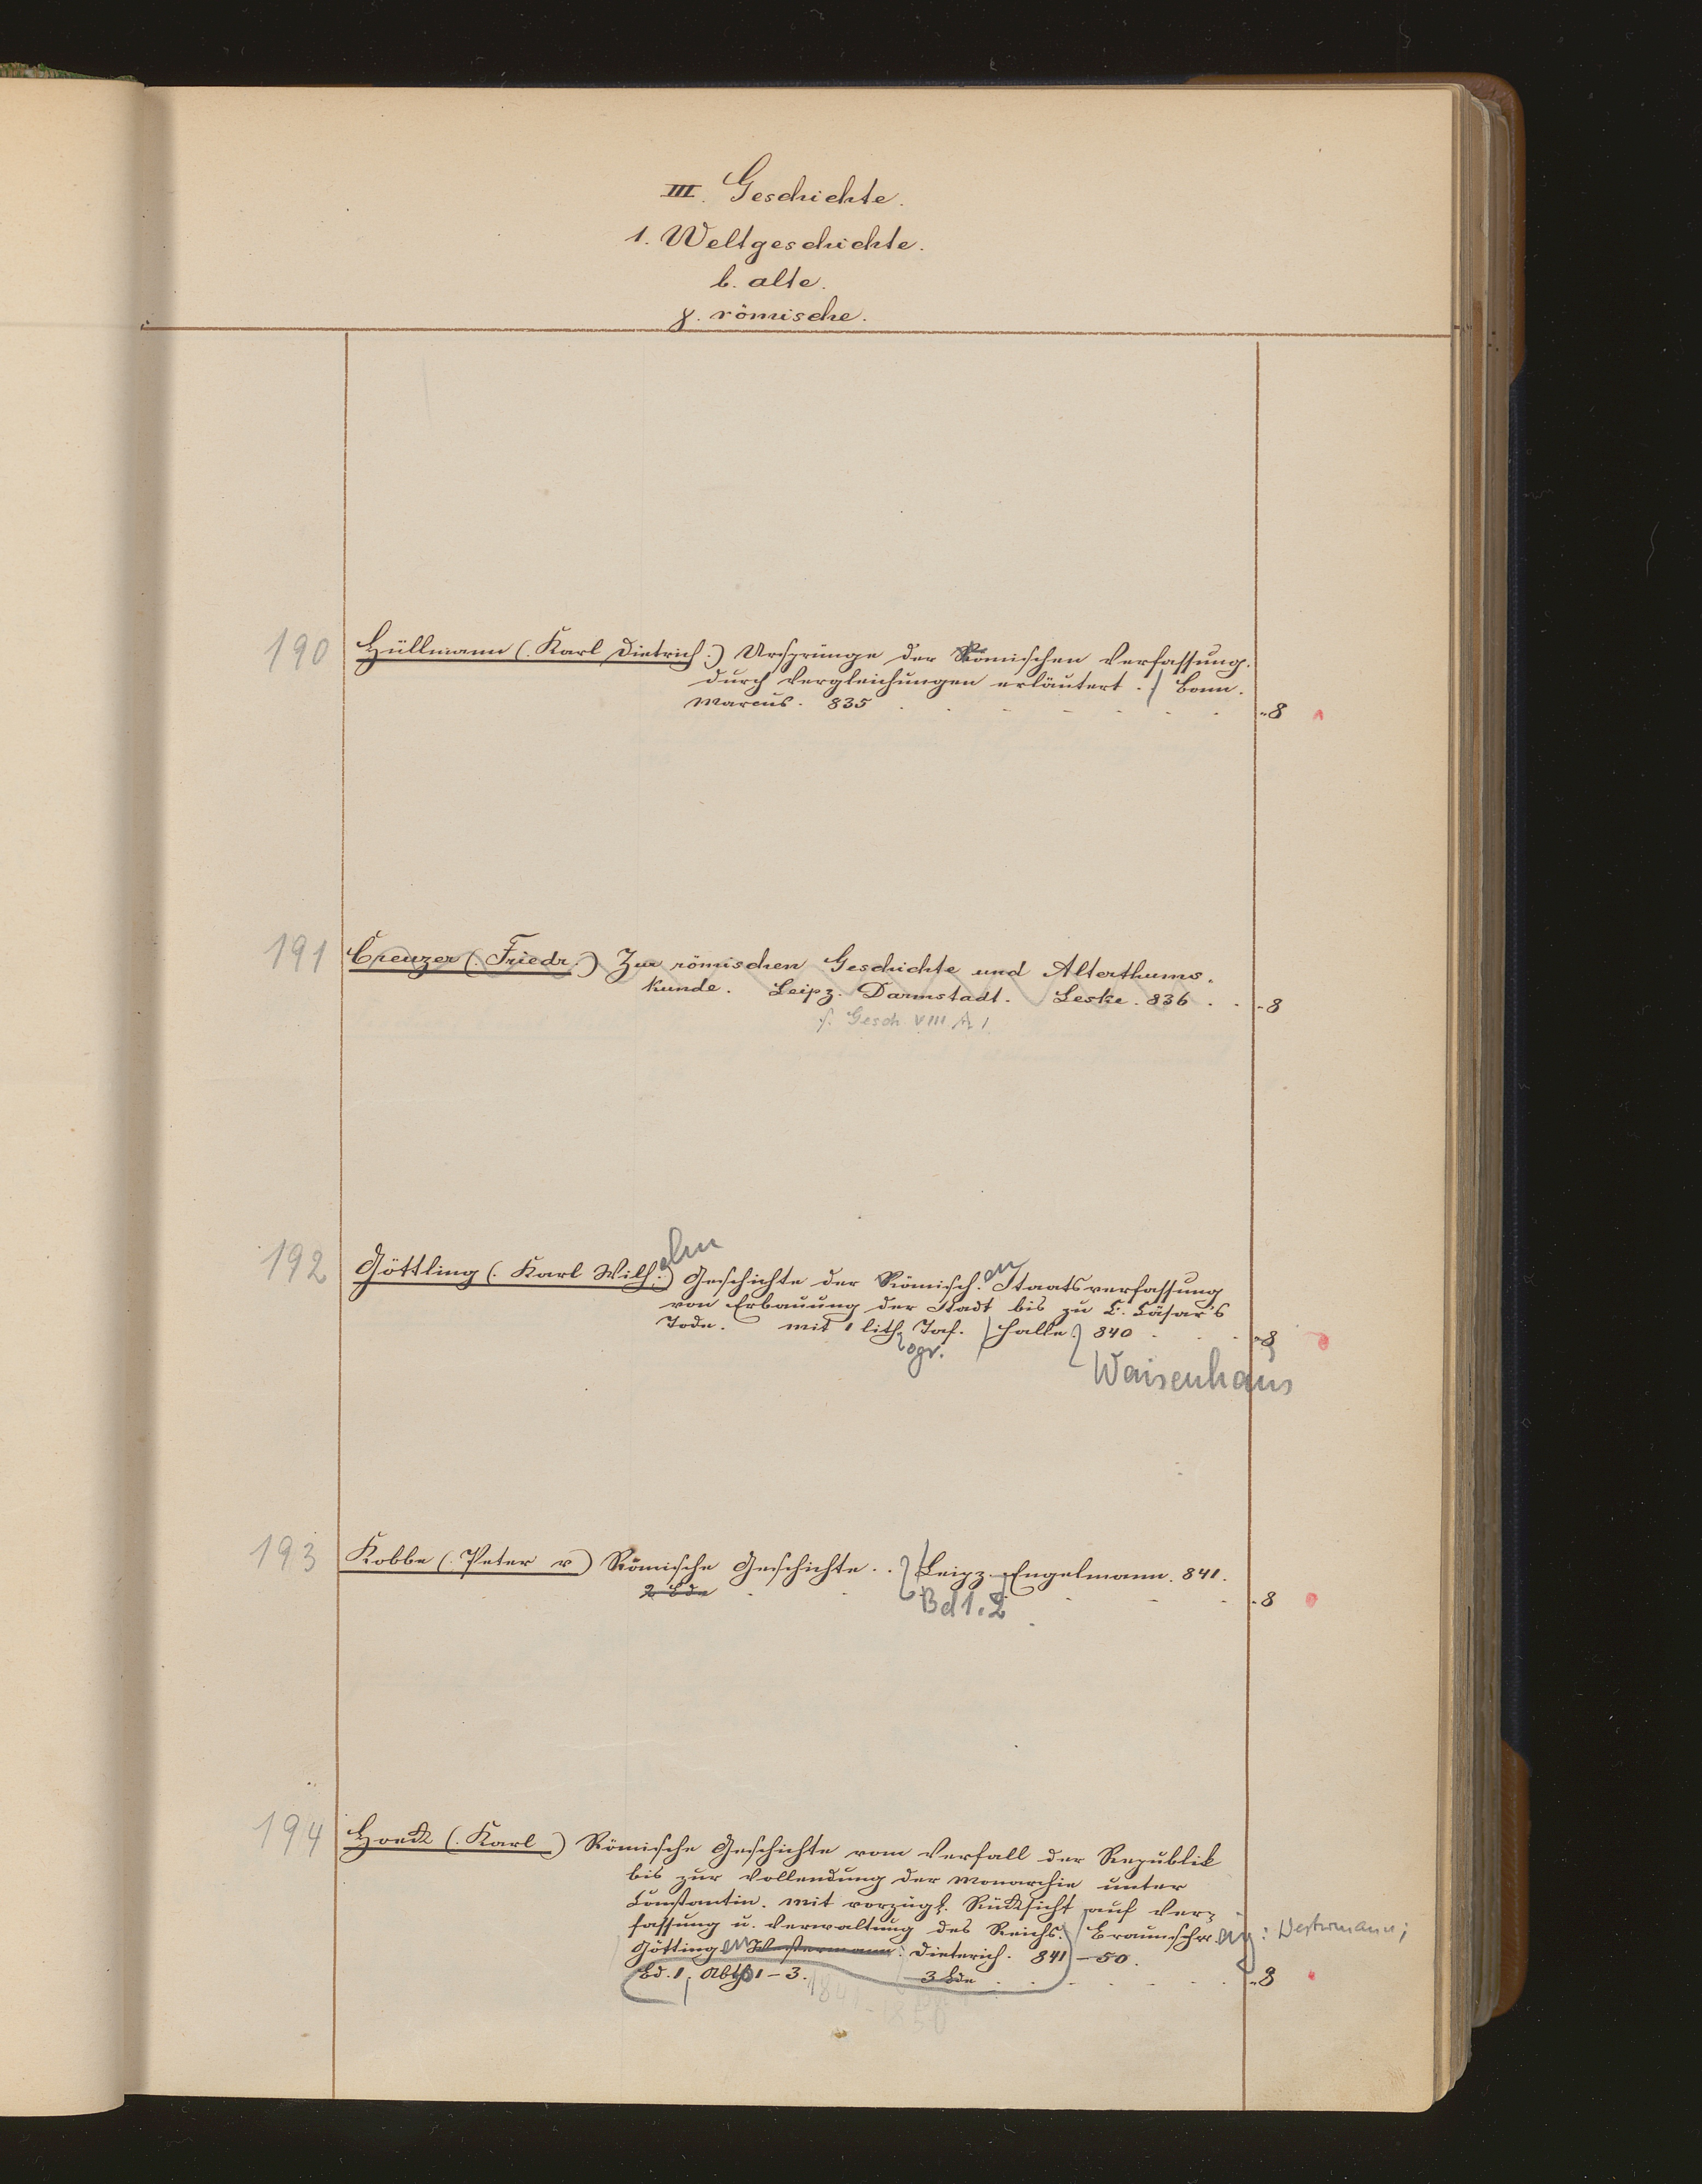 III. Geschichte.
1. Weltgeschichte.
b. alte.
γ. römische.
190 Hüllmann (. Karl Dietrich.) Ursprünge der Römischen Verfassung.
durch Vergleichungen erläutert. Bonn.
Marcus. 835 . . . . . . . 8
191 Creuzer (. Friedr.) Zur römischen Geschichte und Alterthums.
kunde. Leipz. Darmstadt. Leske. 836 . . 8
s. Gesch VIII A 1
192 Göttling (. Karl Wilh.elm) Geschichte der Römisch.en Staatsverfassung
von Erbauung der Stadt bis zu C. Cäsar's
Tode. Mit 1 lith. Taf. Halle. 840 . . 8
ogr.
Waisenhaus
193 Kobbe (. Peter v) Römische Geschichte. . Leipz. Engelmann. 841.
2 Bde . . . . . 8
Bd 1. 2
194 Hoeck (. Karl ) Römische Geschichte vom Verfall der Republik
bis zur Vollendung der Monarchie unter
Constantin. Mit vorzügl. Rücksicht auf Ver=
fassung u. Verwaltung des Reichs. Braunschw.eig: Westermann;
Göttingen Westermann: Dieterich. 841-50.
Bd. 1, Abth 1-3. 3 Bde . . . . . 8
1841-1850